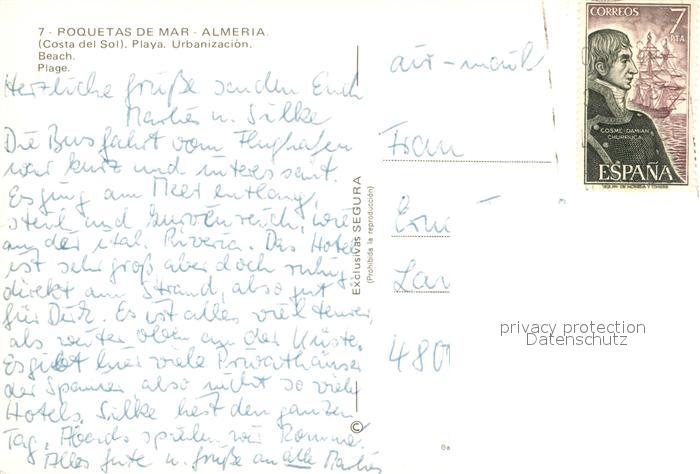 7 - ROQUETAS DE MAR - ALMERIA.
(Costa del Sol). Playa. Urbanización.
Beach.
Plage.
Herzliche Grüße senden Euch
Marlies u. Silke
Die Busfahrt vom Flughafen
war kurz und interessant.
Es ging am Meer entlang,
steil und kurvenreich, wie
an der ital. Riveria. Das Hotel
ist sehr groß aber doch ruhig
direkt am Strand, also gut
für Dirk. Es ist alles viel teurer,
als weiter oben an der Küste.
Es gibt hier viele Privathäuser
der Spanier also nicht so viele
Hotels. Silke liest den ganzen
Tag, Abends spielen wir Romme.
Alles Gute u. Grüße an alle Marlies
Exclusivas SEGURA
(Prohibida la reproducción)
©
air-mail
Frau
480
CORREOS 7
PTA
COSME-DAMIAN
CHURRUCA
ESPAÑA
privacy protection
Datenschutz